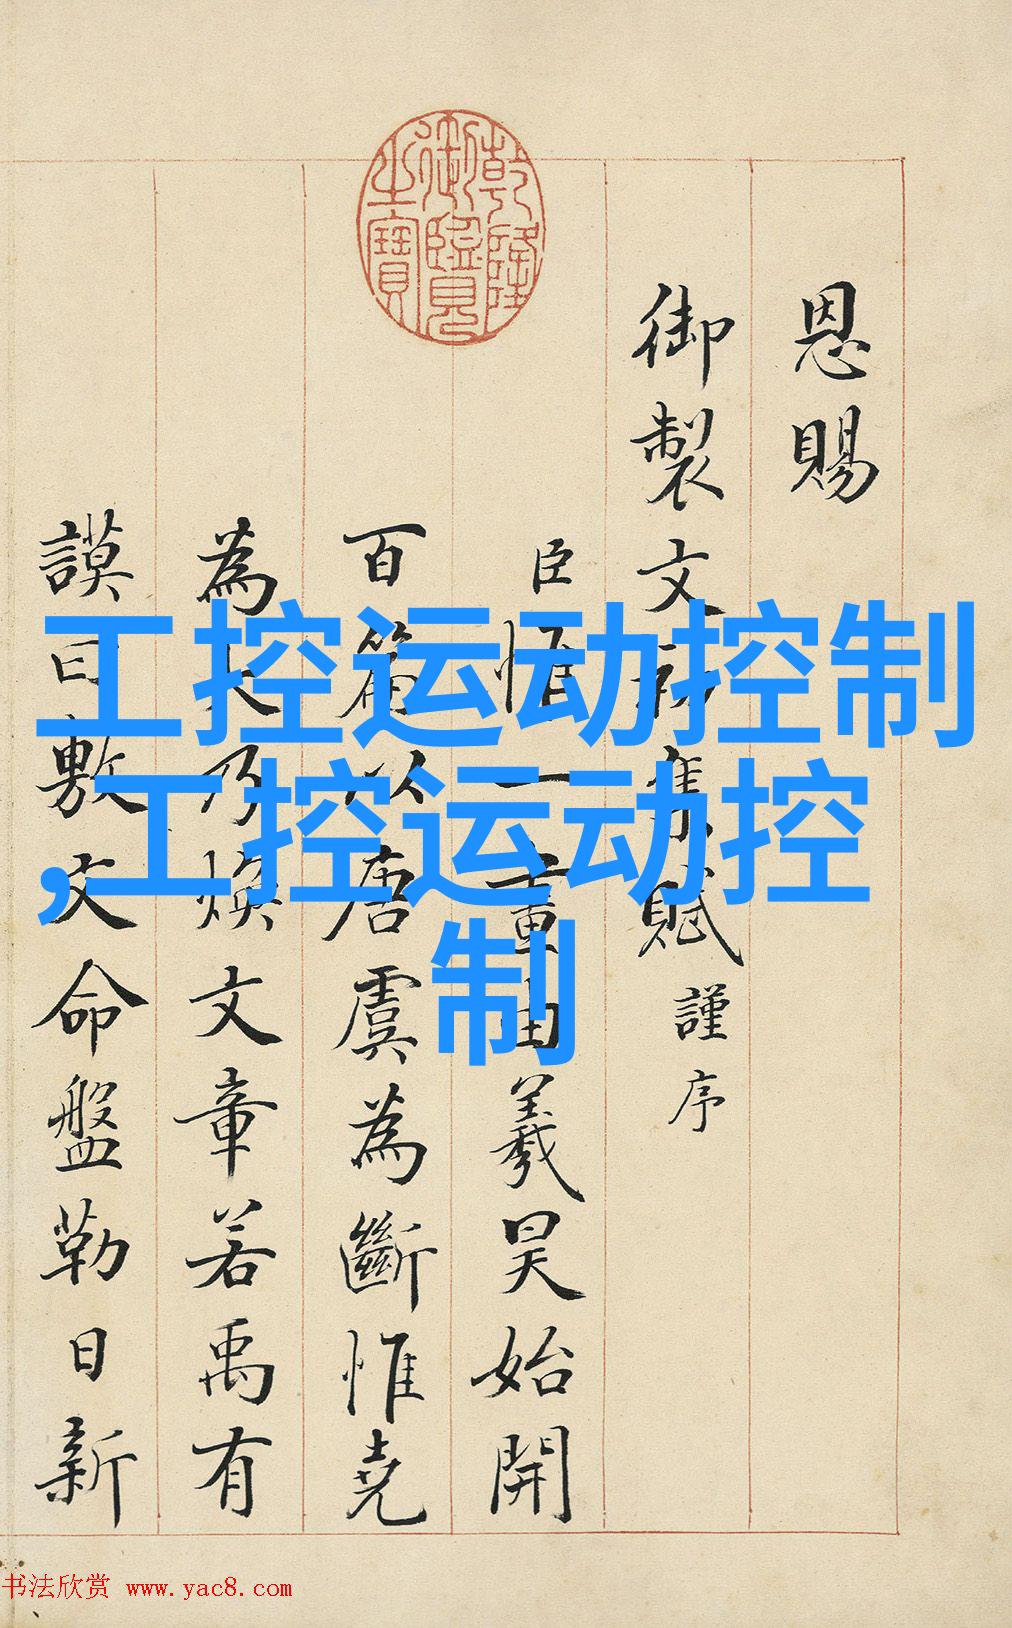 乾隆御覽之寶
恩賜
御製文初集賦謹序
臣惟一畫由羲昊始開
百篇以唐虞為斷惟堯
為大乃煥文章若禹有
謨曰敷文命盤勒日新
工控运动控制
,工控运动控
制
书法欣赏 www.yac8.com